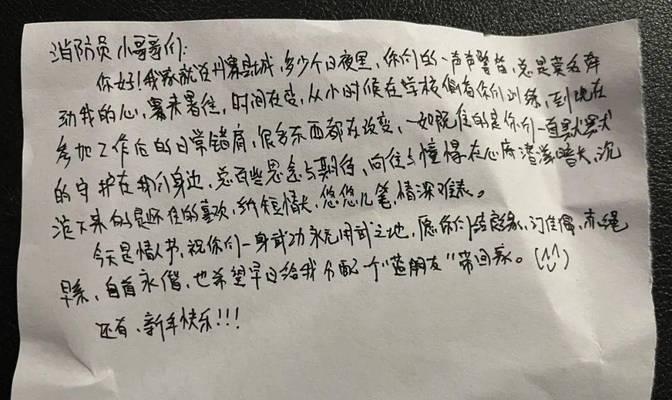 消防员小哥哥们:
你好!我家就在州寨县城,多少个日夜里,你们的一声声警笛,总是莫名牵
动我的心,暑来暑往,时间在变,从小时候在学校偷看你们训练,到现在
参加工作后的日常错肩,很多东西都在改变,一如既往的是你们一直默默
的守护在我们身边,总有些思念与期待,向往与憧憬在心底潜滋暗长,沉
淀下来的是怀住的喜欢,纸短情长,悠悠几笔,情深难表。
今天是情人节,祝你们一身武功永无用武之地,愿你们结良缘,订佳偶,赤绳
早系,白首永偕,也希望早日给我分配一个"蓝朋友"带回家。(^^)
还有,新年快乐!!!